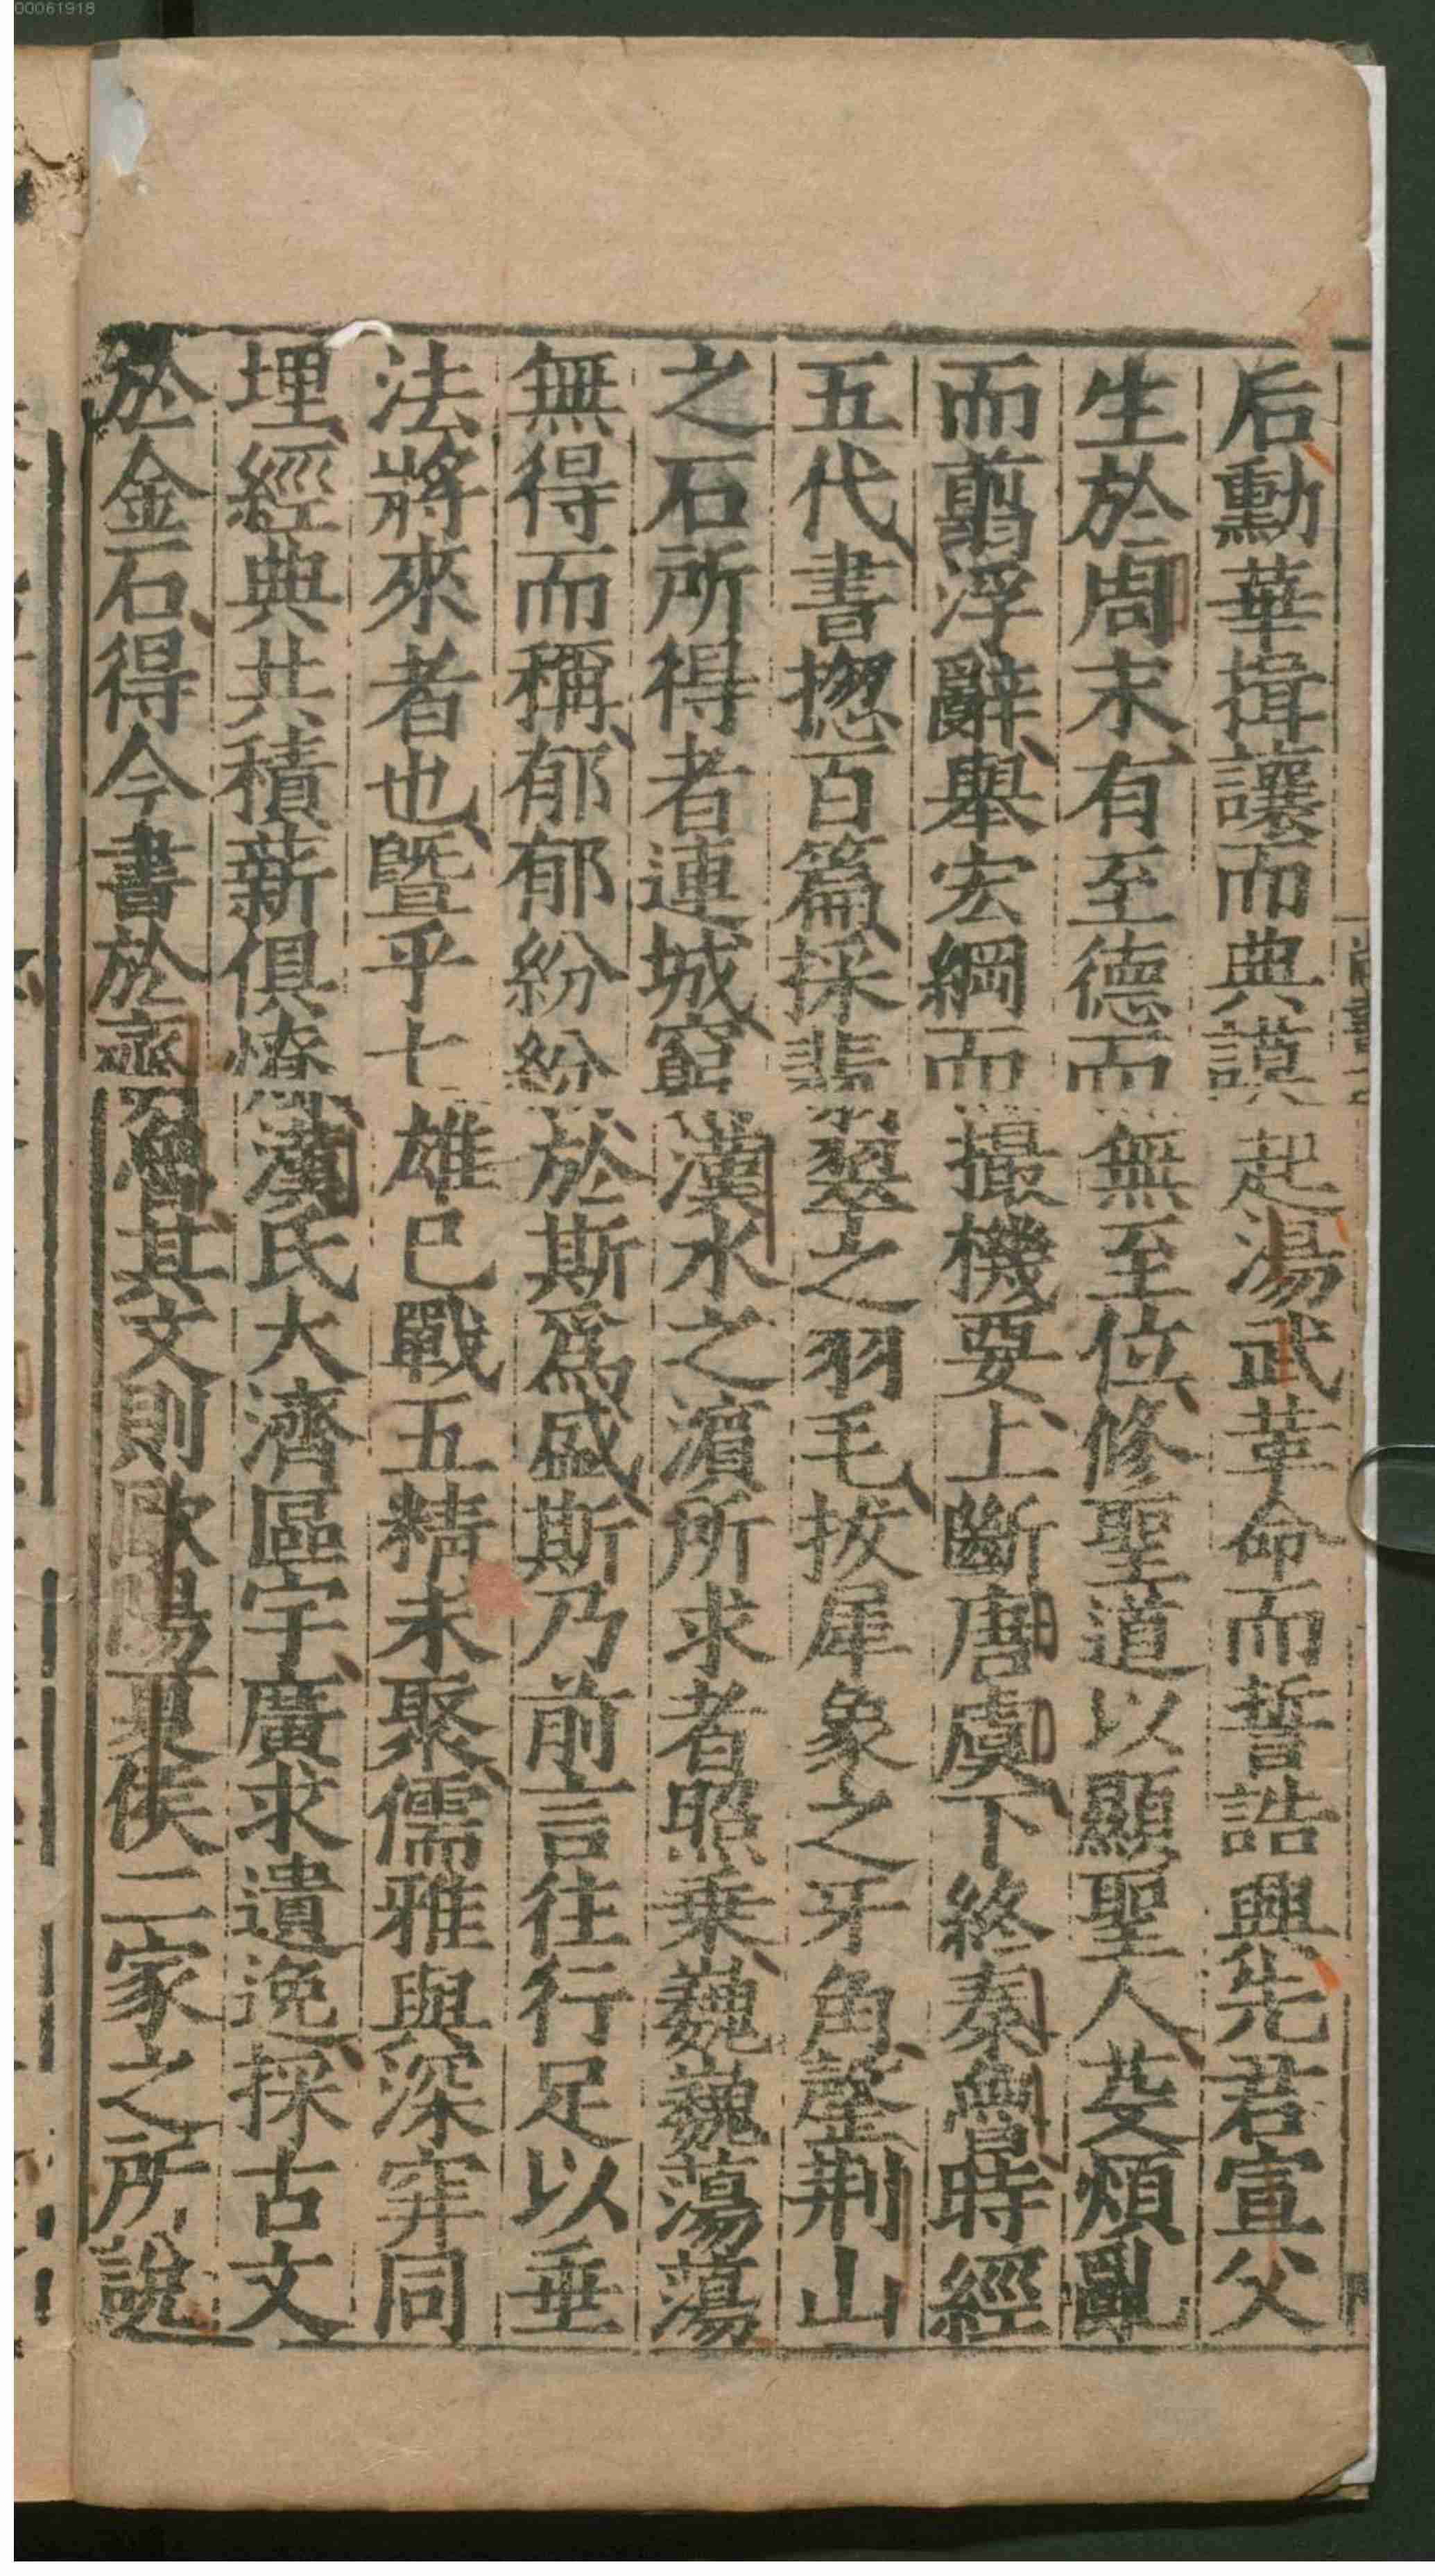 00061918
后勳華揖讓而典謨起湯武革命而誓誥興先君宣父
生於周末有至德而無至位修聖道以顯聖人芟煩亂
而翦浮辭舉宏綱而撮機要上斷唐虞下終秦魯時經
五代書揔百篇採翡翠之羽毛拔犀象之牙角罄荆山
之石所得者連城窮漢水之濵所求者照乗巍巍蕩蕩
無得而稱郁郁紛紛於斯爲盛斯乃前言往行足以垂
法將來者也曁乎七雄已戰五精未聚儒雅與深穽同
埋經典共積薪俱燎漢氏大濟區宇廣求遺逸採古文
於金石得今書於齊魯其文則歐陽夏侯二家之所說